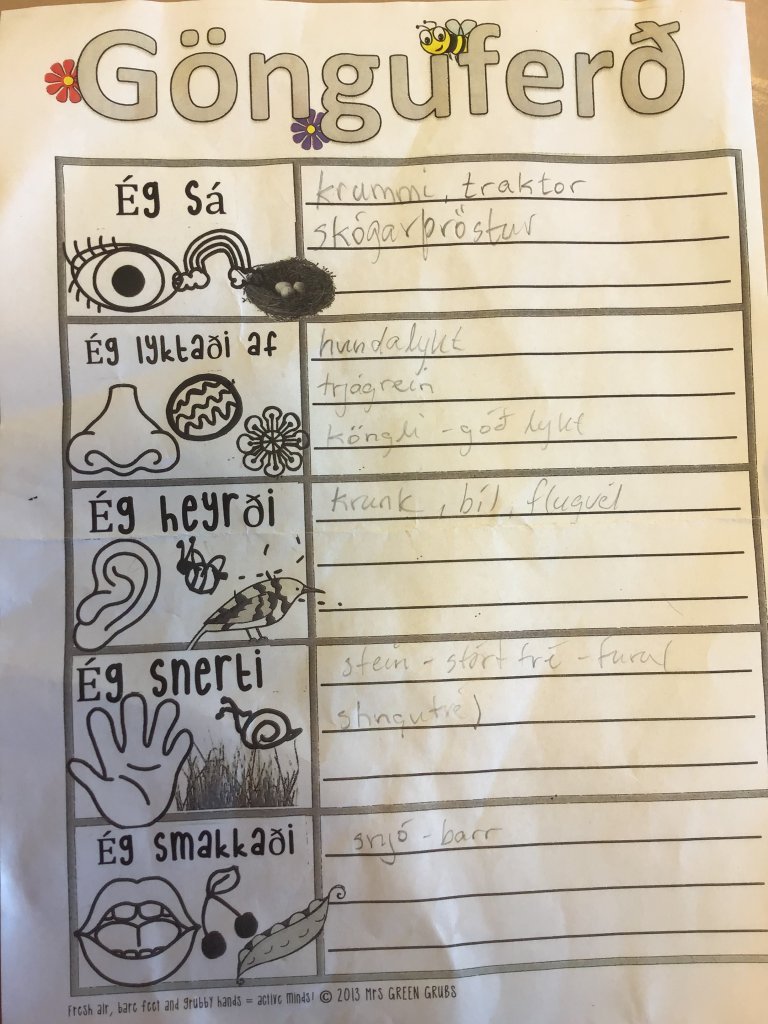 Gönguferð
Ég sá
krummi, traktor
skógarþröstur
Ég lyktaði af
hundalykt
trjágrein
köngli - góð lykt
Ég heyrði
krunk, bíl, flugvél
Ég snerti
stein - stórt tré - fura(
Ég smakkaði
snjó - barr
Fresh air, bare feet and grubby hands = active minds! © 2013 Mrs GREEN GRUBS